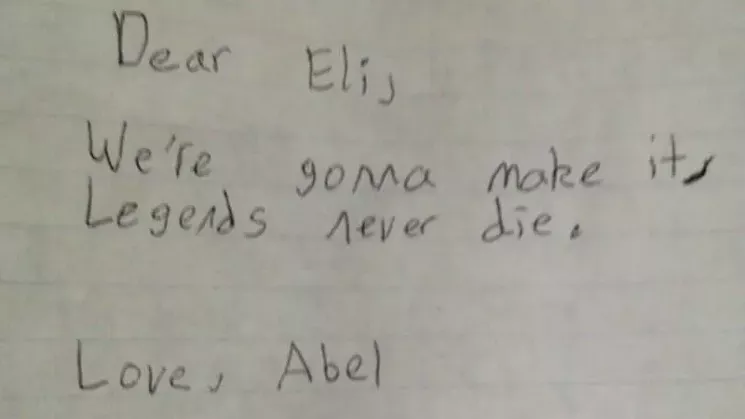 Dear Eli,
We're gonna make it,
Legends never die.
Love, Abel